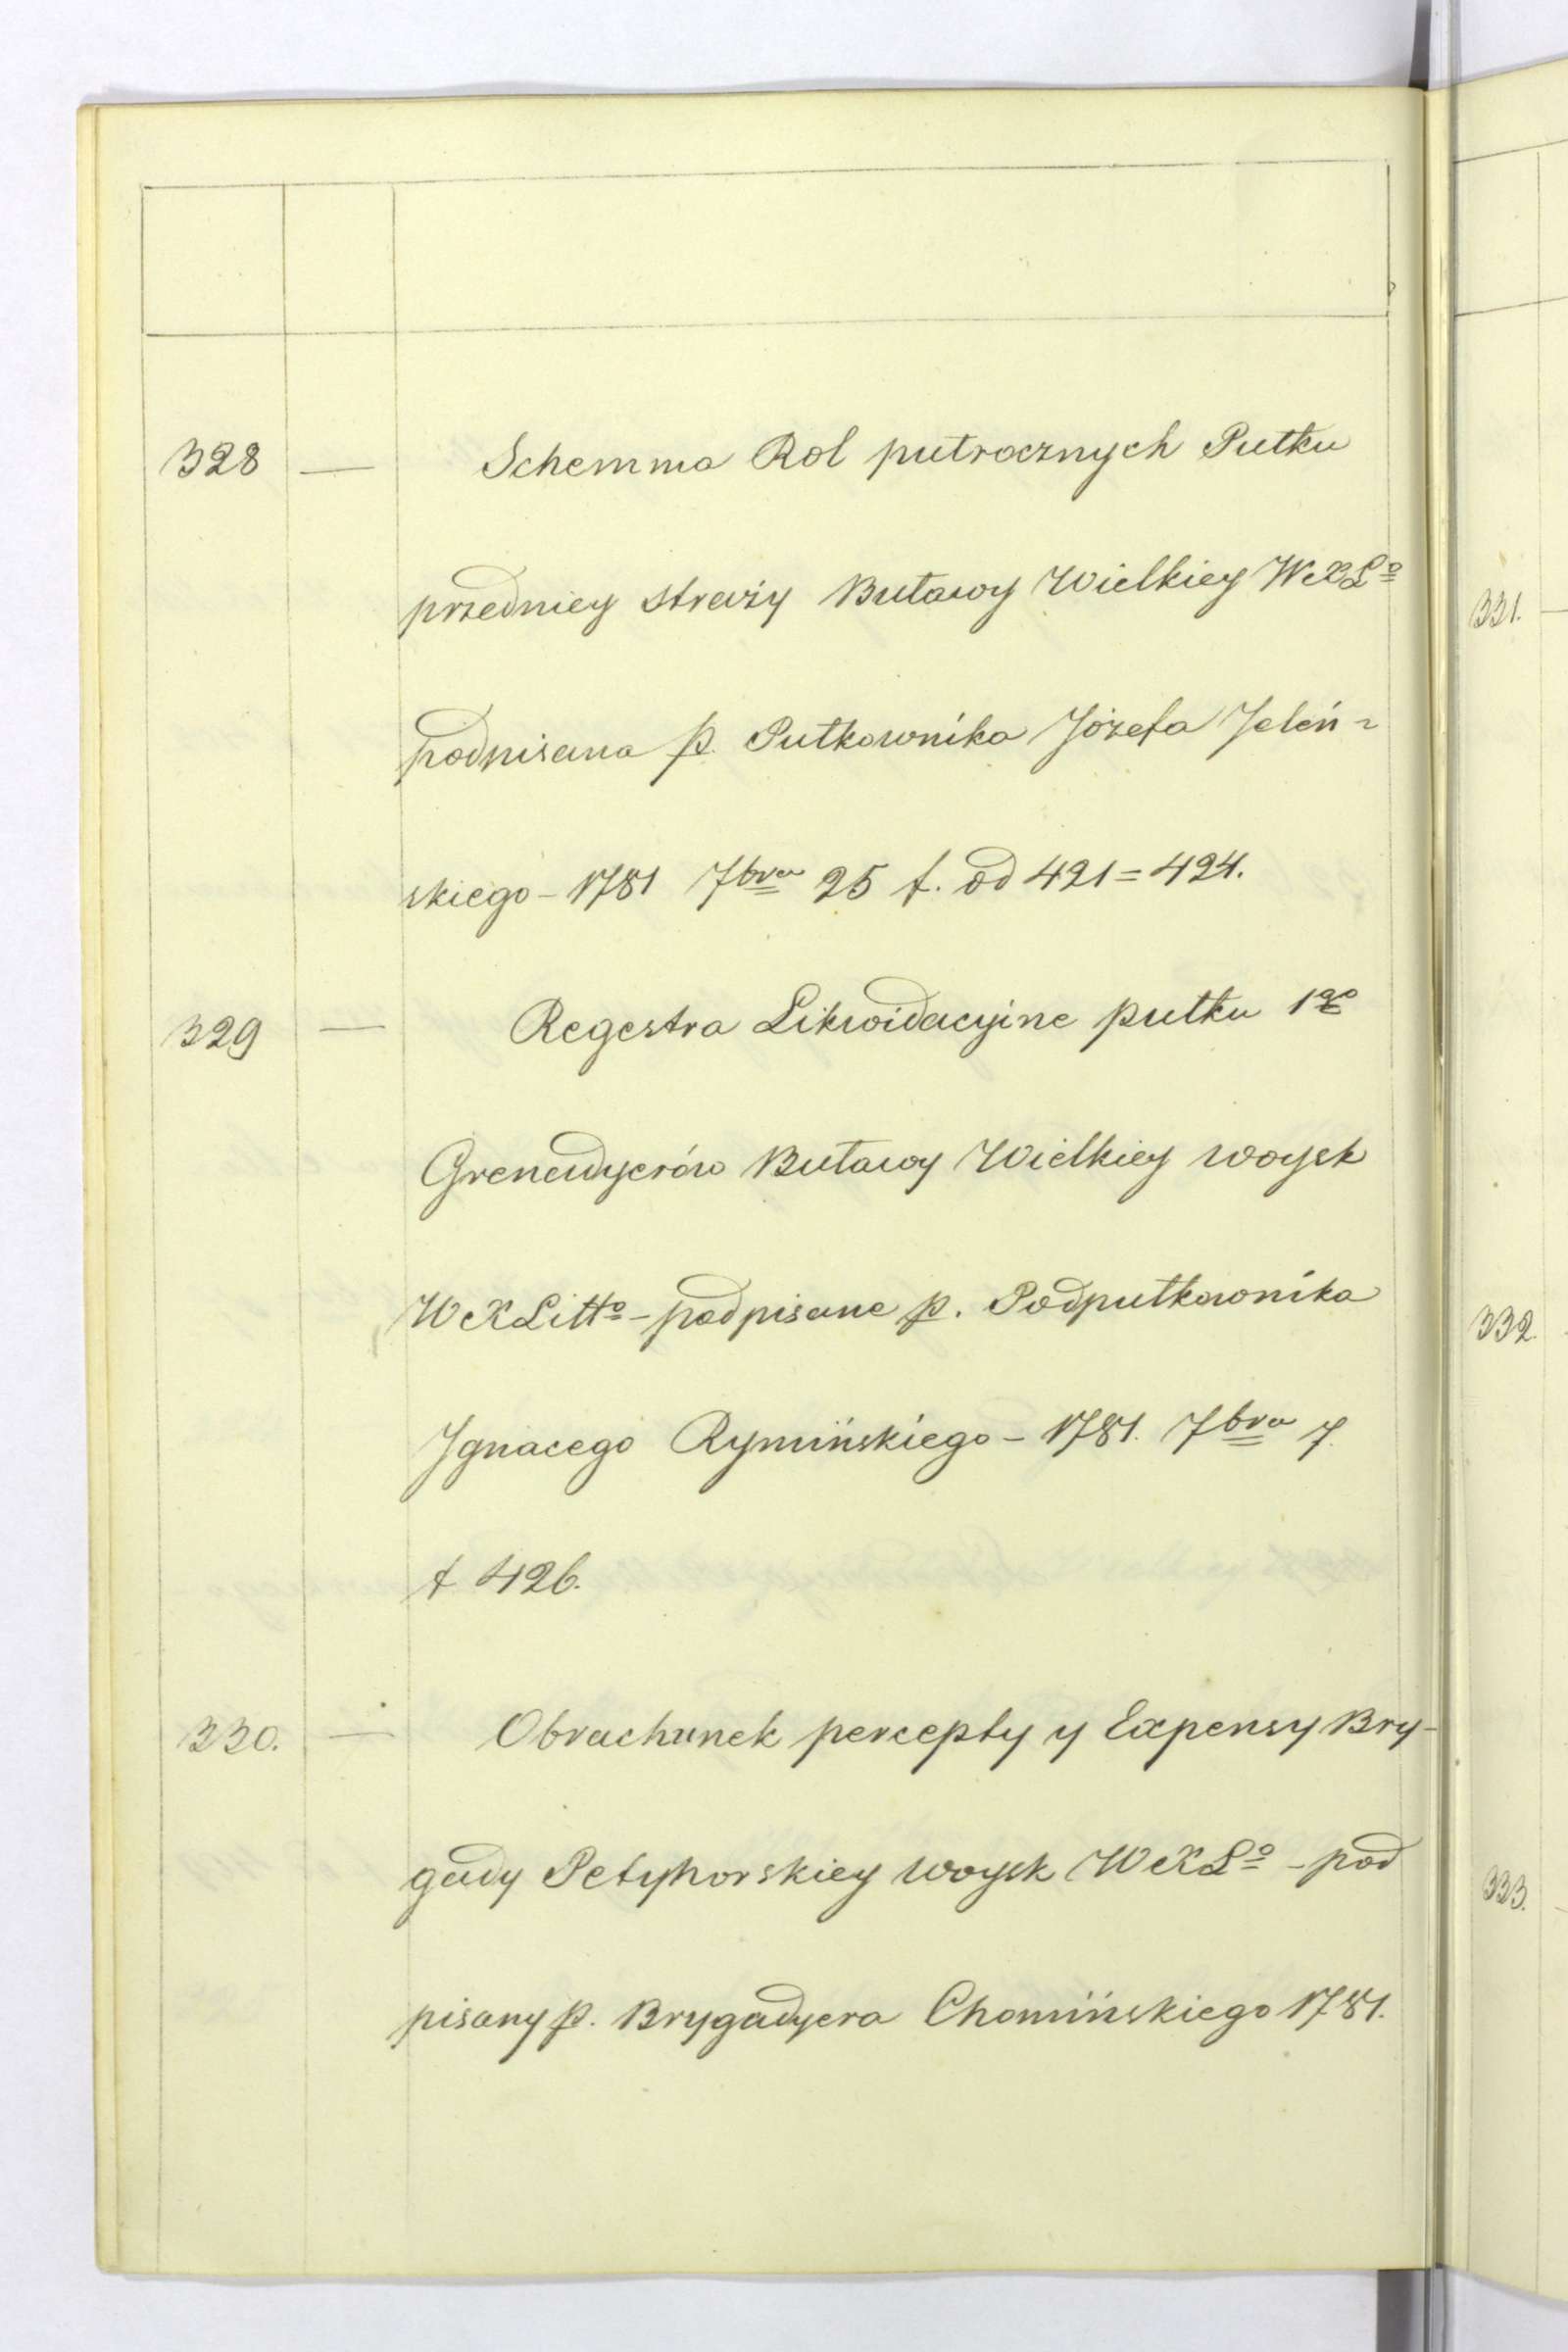 328 — Schemma Rol pułrocznych Pułku
przedniey straży Buławy Wielkiey WXLº
podpisana p. Pułkownika Józefa Jeleń=
skiego – 1781 7bra 25 f. od 421 = 424.
329 — Regestra Likwidacyine pułku 1go
Grenadyerów Buławy Wielkiey woysk
WXLittº – podpisane p. Podpułkownika
Ignacego Rymińskiego – 1781. 7bra 7.
f 426.
330. — Obrachunek percepty y Expensy Bry-
gady Petyhorskiey woysk WXLº – pod
pisany p. Brygadyera Chomińskiego 1781.
331.
332.
333.